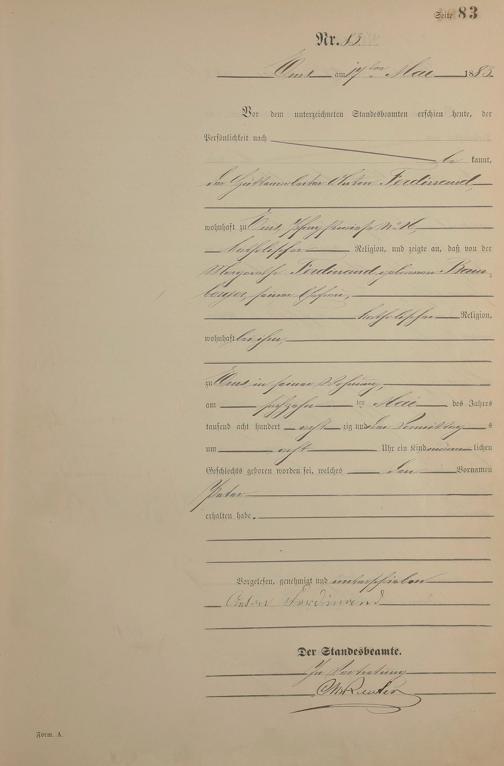 Seite 83
Nr. 83
Ems am 17ten Mai 1883
Vor dem unterzeichneten Standesbeamten erschien heute, der
Persönlichkeit nach
be kannt,
der Hüttenarbeiter Anton Ferdinand,
wohnhaft zu Ems,
katholischer Religion, und zeigte an, daß von der
Margarethe Ferdinand, geborenen Bam-
berger, seiner Ehefrau,
katholischer Religion,
wohnhaft bei ihm,
zu Ems in seiner Wohnung,
am sechzehn ten Mai des Jahres
tausend acht hundert acht zig und drei Vormittag s
um acht Uhr ein Kind männ lichen
Geschlechts geboren worden sei, welches den Vornamen
Peter
erhalten habe.
Vorgelesen, genehmigt und unterschrieben
Anton Ferdinand
Der Standesbeamte.
In Vertretung
Form. A.